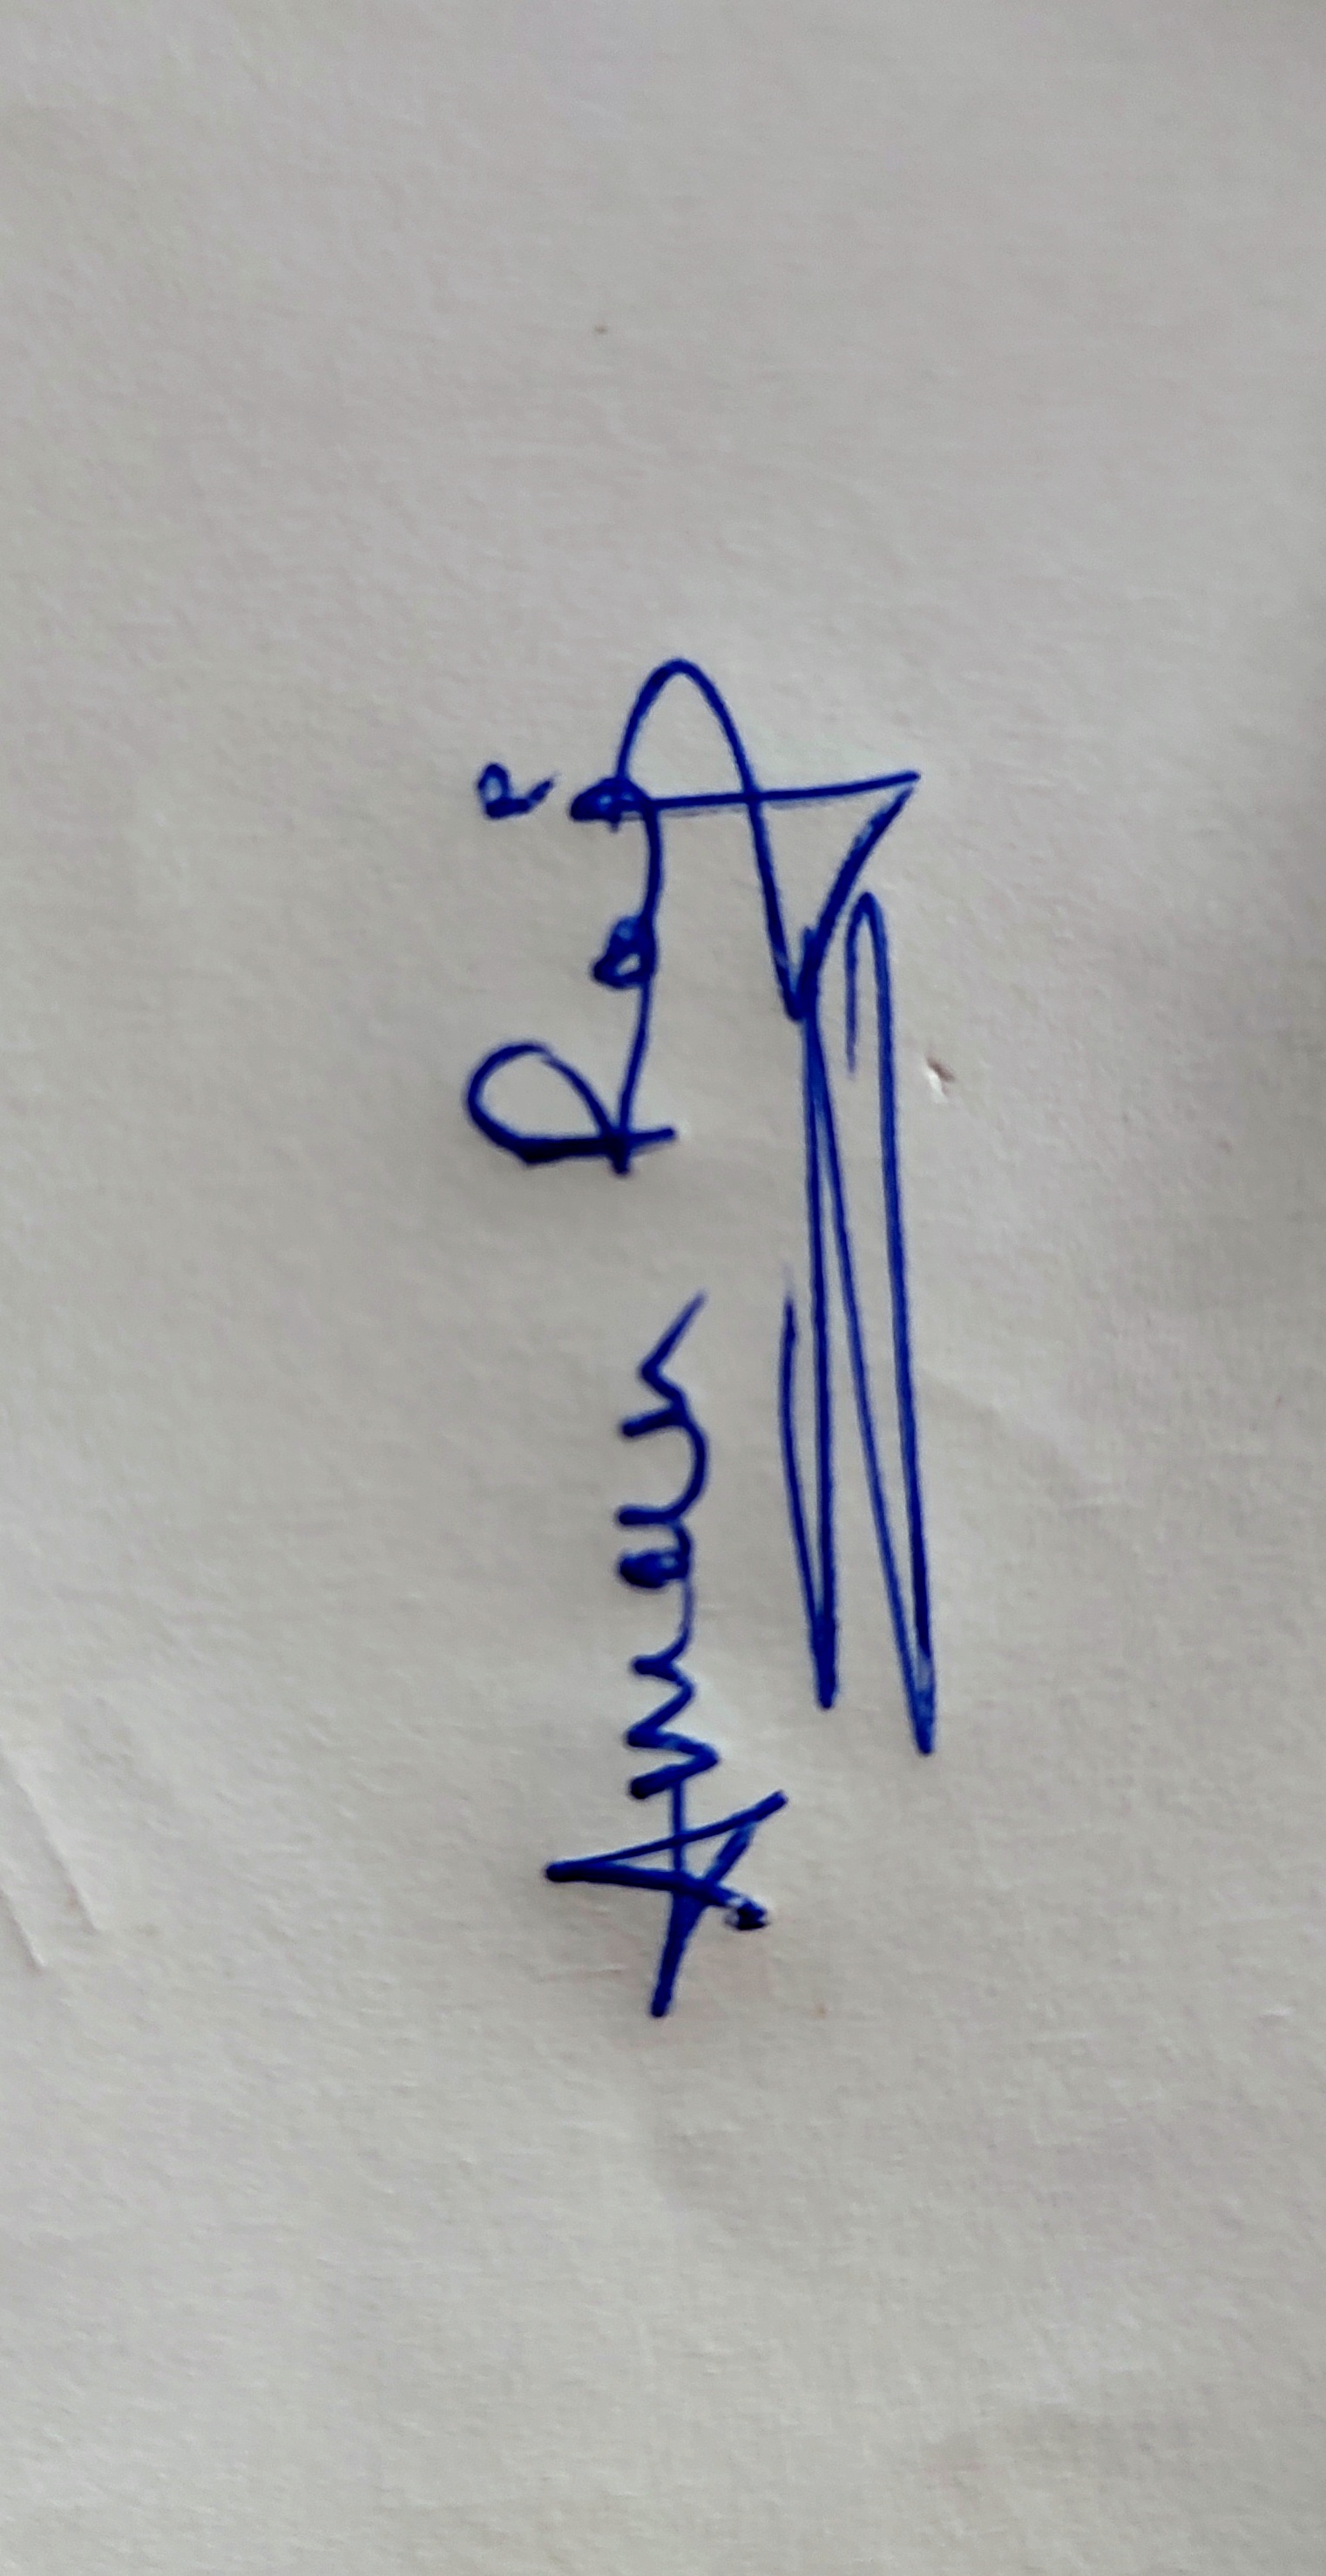 Aman Raj